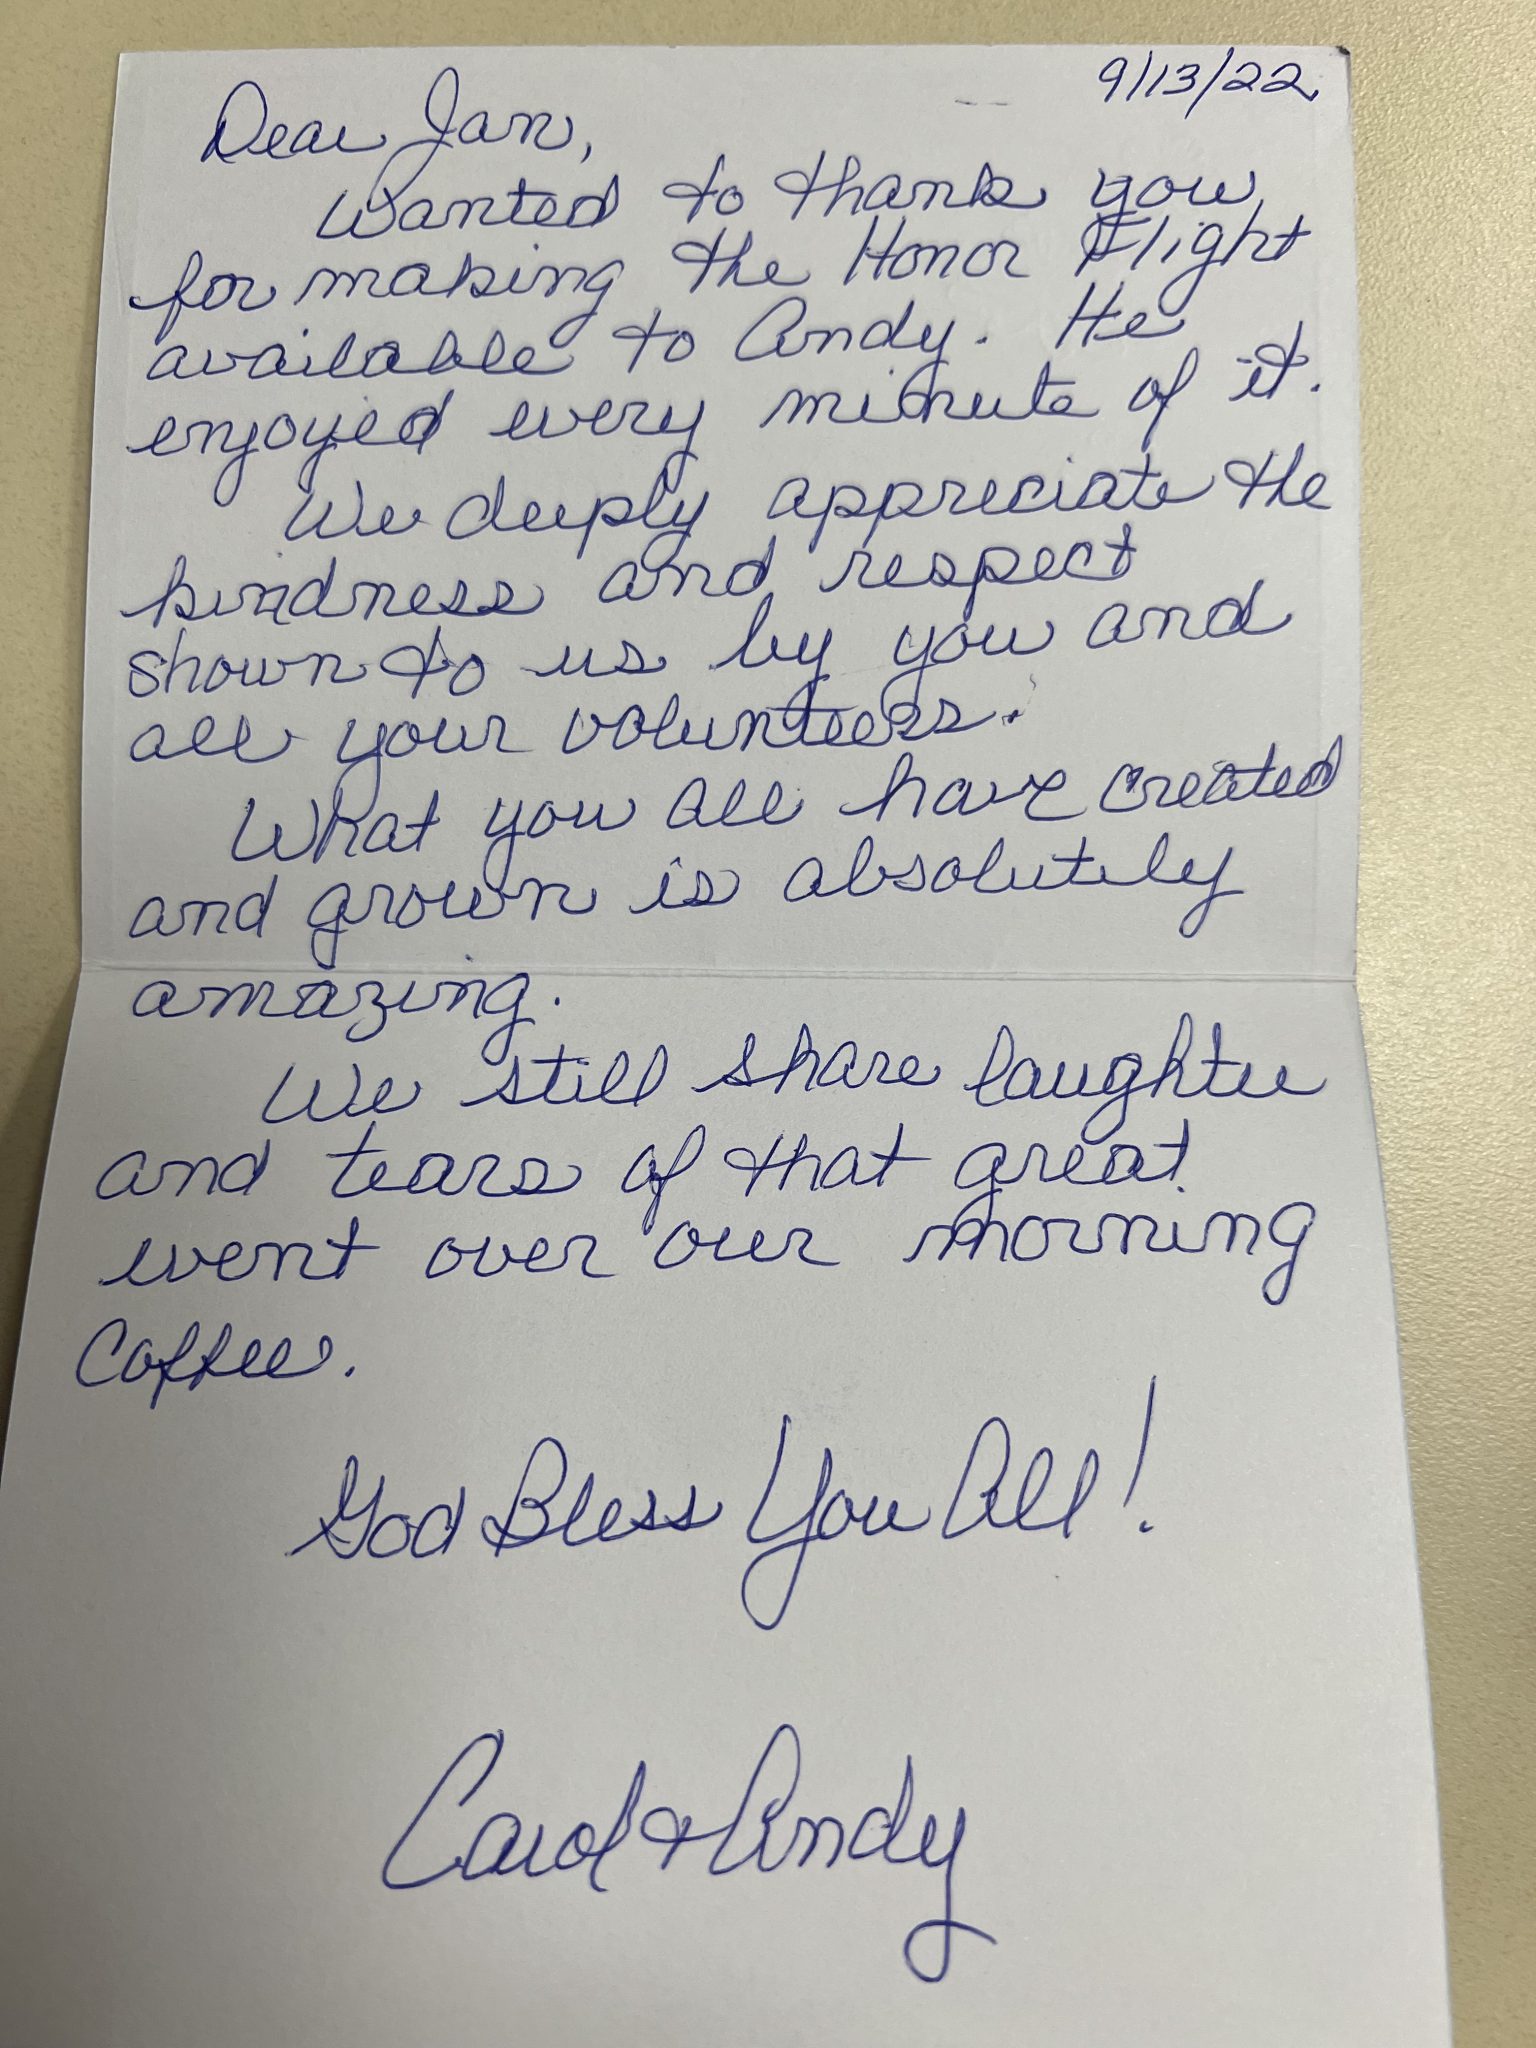 9/13/22
Dear Jan,
Wanted to thank you
for making the Honor Flight
available to Andy. He
enjoyed every minute of it.
We deeply appreciate the
kindness and respect
shown to us by you and
all your volunteers.
What you all have created
and grown is absolutely
amazing.
We still share laughter
and tears of that great
event over our morning
Coffee.
God Bless You All!
Carol & Andy